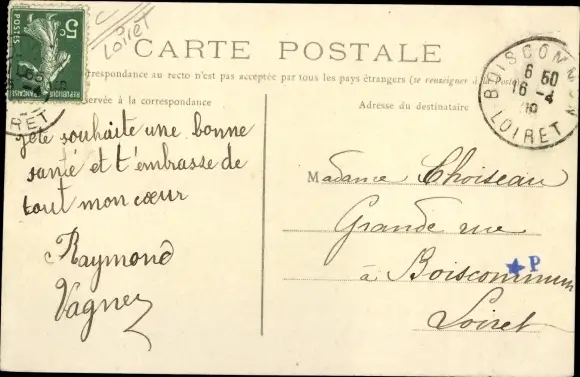 Loiret
5c
POSTES
REPUBLIQUE FRANÇAISE
CARTE POSTALE
correspondance au recto n'est pas acceptée par tous les pays étrangers (se renseigner à la poste)
servée à la correspondance
Adresse du destinataire
BOISCOMMUN
6 50
16 - 4
LOIRET
RET
je te souhaite une bonne
santé et t'embrasse de
tout mon cœur
Raymond
Vagner
Madame Choiseau
Grande rue
à Boiscommun
Loiret
P